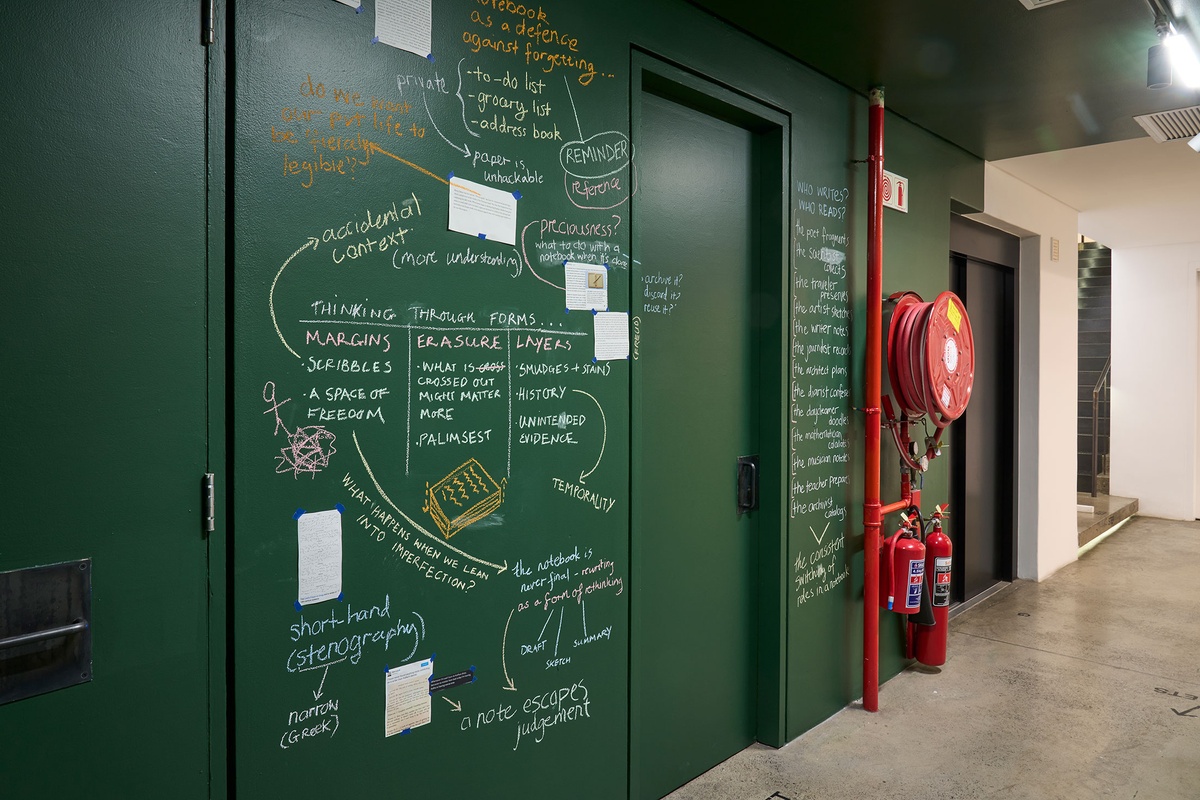 notebook
as a defence
against forgetting...
private
-to-do list
-grocery list
-address book
do we want
our private life to
be fiercely
legible?
paper is
unhackable
REMINDER
reference
accidental
context
(more understanding)
preciousness?
what to do with a
notebook when it's done
archive it?
discard it?
reuse it?
(FREUD)
THINKING THROUGH FORMS...
MARGINS
·SCRIBBLES
·A SPACE OF
FREEDOM
ERASURE
·WHAT IS CROSS
CROSSED OUT
MIGHT MATTER
MORE
·PALIMSEST
LAYERS
·SMUDGES + STAINS
·HISTORY
·UNINTENDED
EVIDENCE
TEMPORALITY
WHAT HAPPENS WHEN WE LEAN
INTO IMPERFECTION?
the notebook is
never final - rewriting
as a form of rethinking
DRAFT
SKETCH
SUMMARY
short-hand
(stenography)
narrow
(GREEK)
a note escapes
judgement
WHO WRITES?
WHO READS?
the poet fragments
the scientist
collects
the traveler
preserves
the artist sketches
the writer notes
the journalist records
the architect plans
the diarist
the daydreamer
doodles
the mathematician
calculates
the musician
the teacher prepares
the archivist
catalogs
the consistent
switching of
roles in a notebook